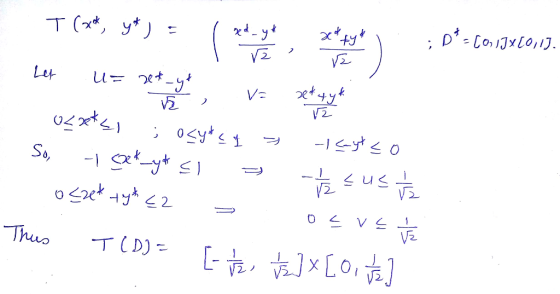 T (x*, y*) = ( (x*-y*)/√2 , (x*+y*)/√2 ) ; D* = [0,1]x[0,1].
Let u = (x*-y*)/√2 , v = (x*+y*)/√2
0≤x*≤1 ; 0≤y*≤1 ⇒ -1≤-y*≤0
So, -1 ≤x*-y* ≤1 ⇒ -1/√2 ≤ u ≤ 1/√2
0≤x*+y* ≤2 ⇒ 0 ≤ v ≤ 1/√2
Thus T(D) = [-1/√2, 1/√2]x[0, 1/√2]